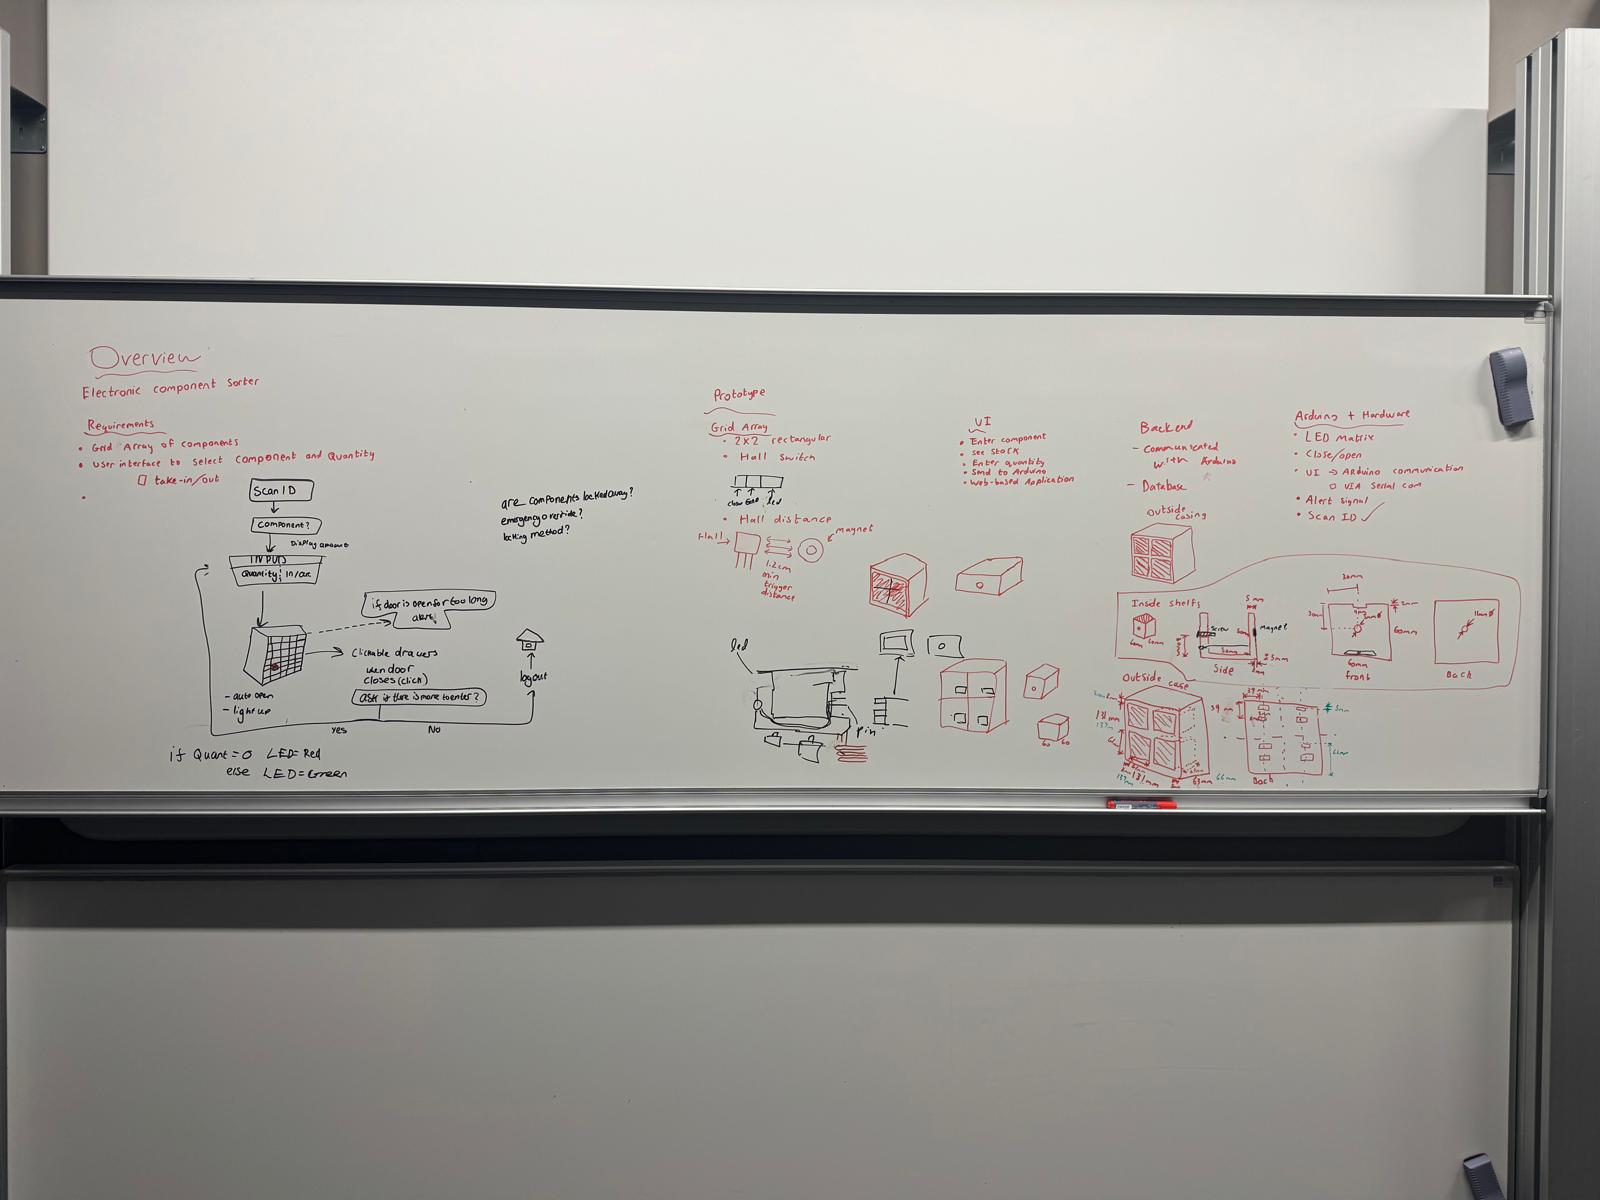 Overview
Electronic component sorter
Requirements
• Grid Array of components
• User interface to select component and Quantity
take-in/out
•
Scan ID
Component?
Display amount
INPUTS
Quantity; In/out
if door is open for too long
alert
Clickable drawers
wen door
closes (click)
- auto open
- light up
ask if there is more to enter?
yes
No
logout
if Quant = 0 LED= Red
else LED = Green
are components locked away?
emergency override?
locking method?
Prototype
Grid Array
• 2x2 rectangular
• Hall switch
led
• Hall distance
Hall
magnet
1.2cm
min
trigger
distance
led
Pin
60 60
UI
• Enter component
• see stock
• Enter quantity
• Send to Arduino
• Web-based Application
Backend
- Communicated
with Arduino
- Database
Outside
casing
Arduino + Hardware
• LED Matrix
• Close/open
• UI → Arduino communication
VIA Serial com
• Alert signal
• Scan ID ✓
Inside shelfs
60mm 60mm
Screw
5 mm
Magnet
Side
2mm
60mm
60mm
front
Back
Outside case
131 mm
131mm
63mm
66mm
39 mm
39 mm
Back